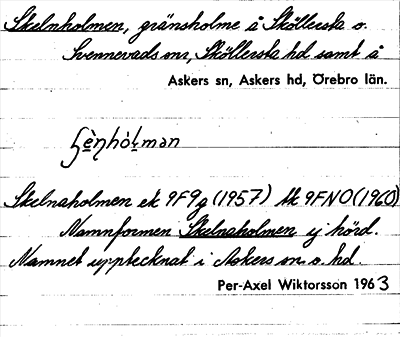 Skelnholmen, gränsholme å Sköllersta o.
Svennevads snr, Sköllersta hd samt å
Askers sn, Askers hd, Örebro län.
Skelnaholmen ek 9F9g (1957) tk 9FNO (1960)
Namnformen Skelnaholmen ej hörd.
Namnet upptecknat i Askers sn. o. hd.
Per-Axel Wiktorsson 1963